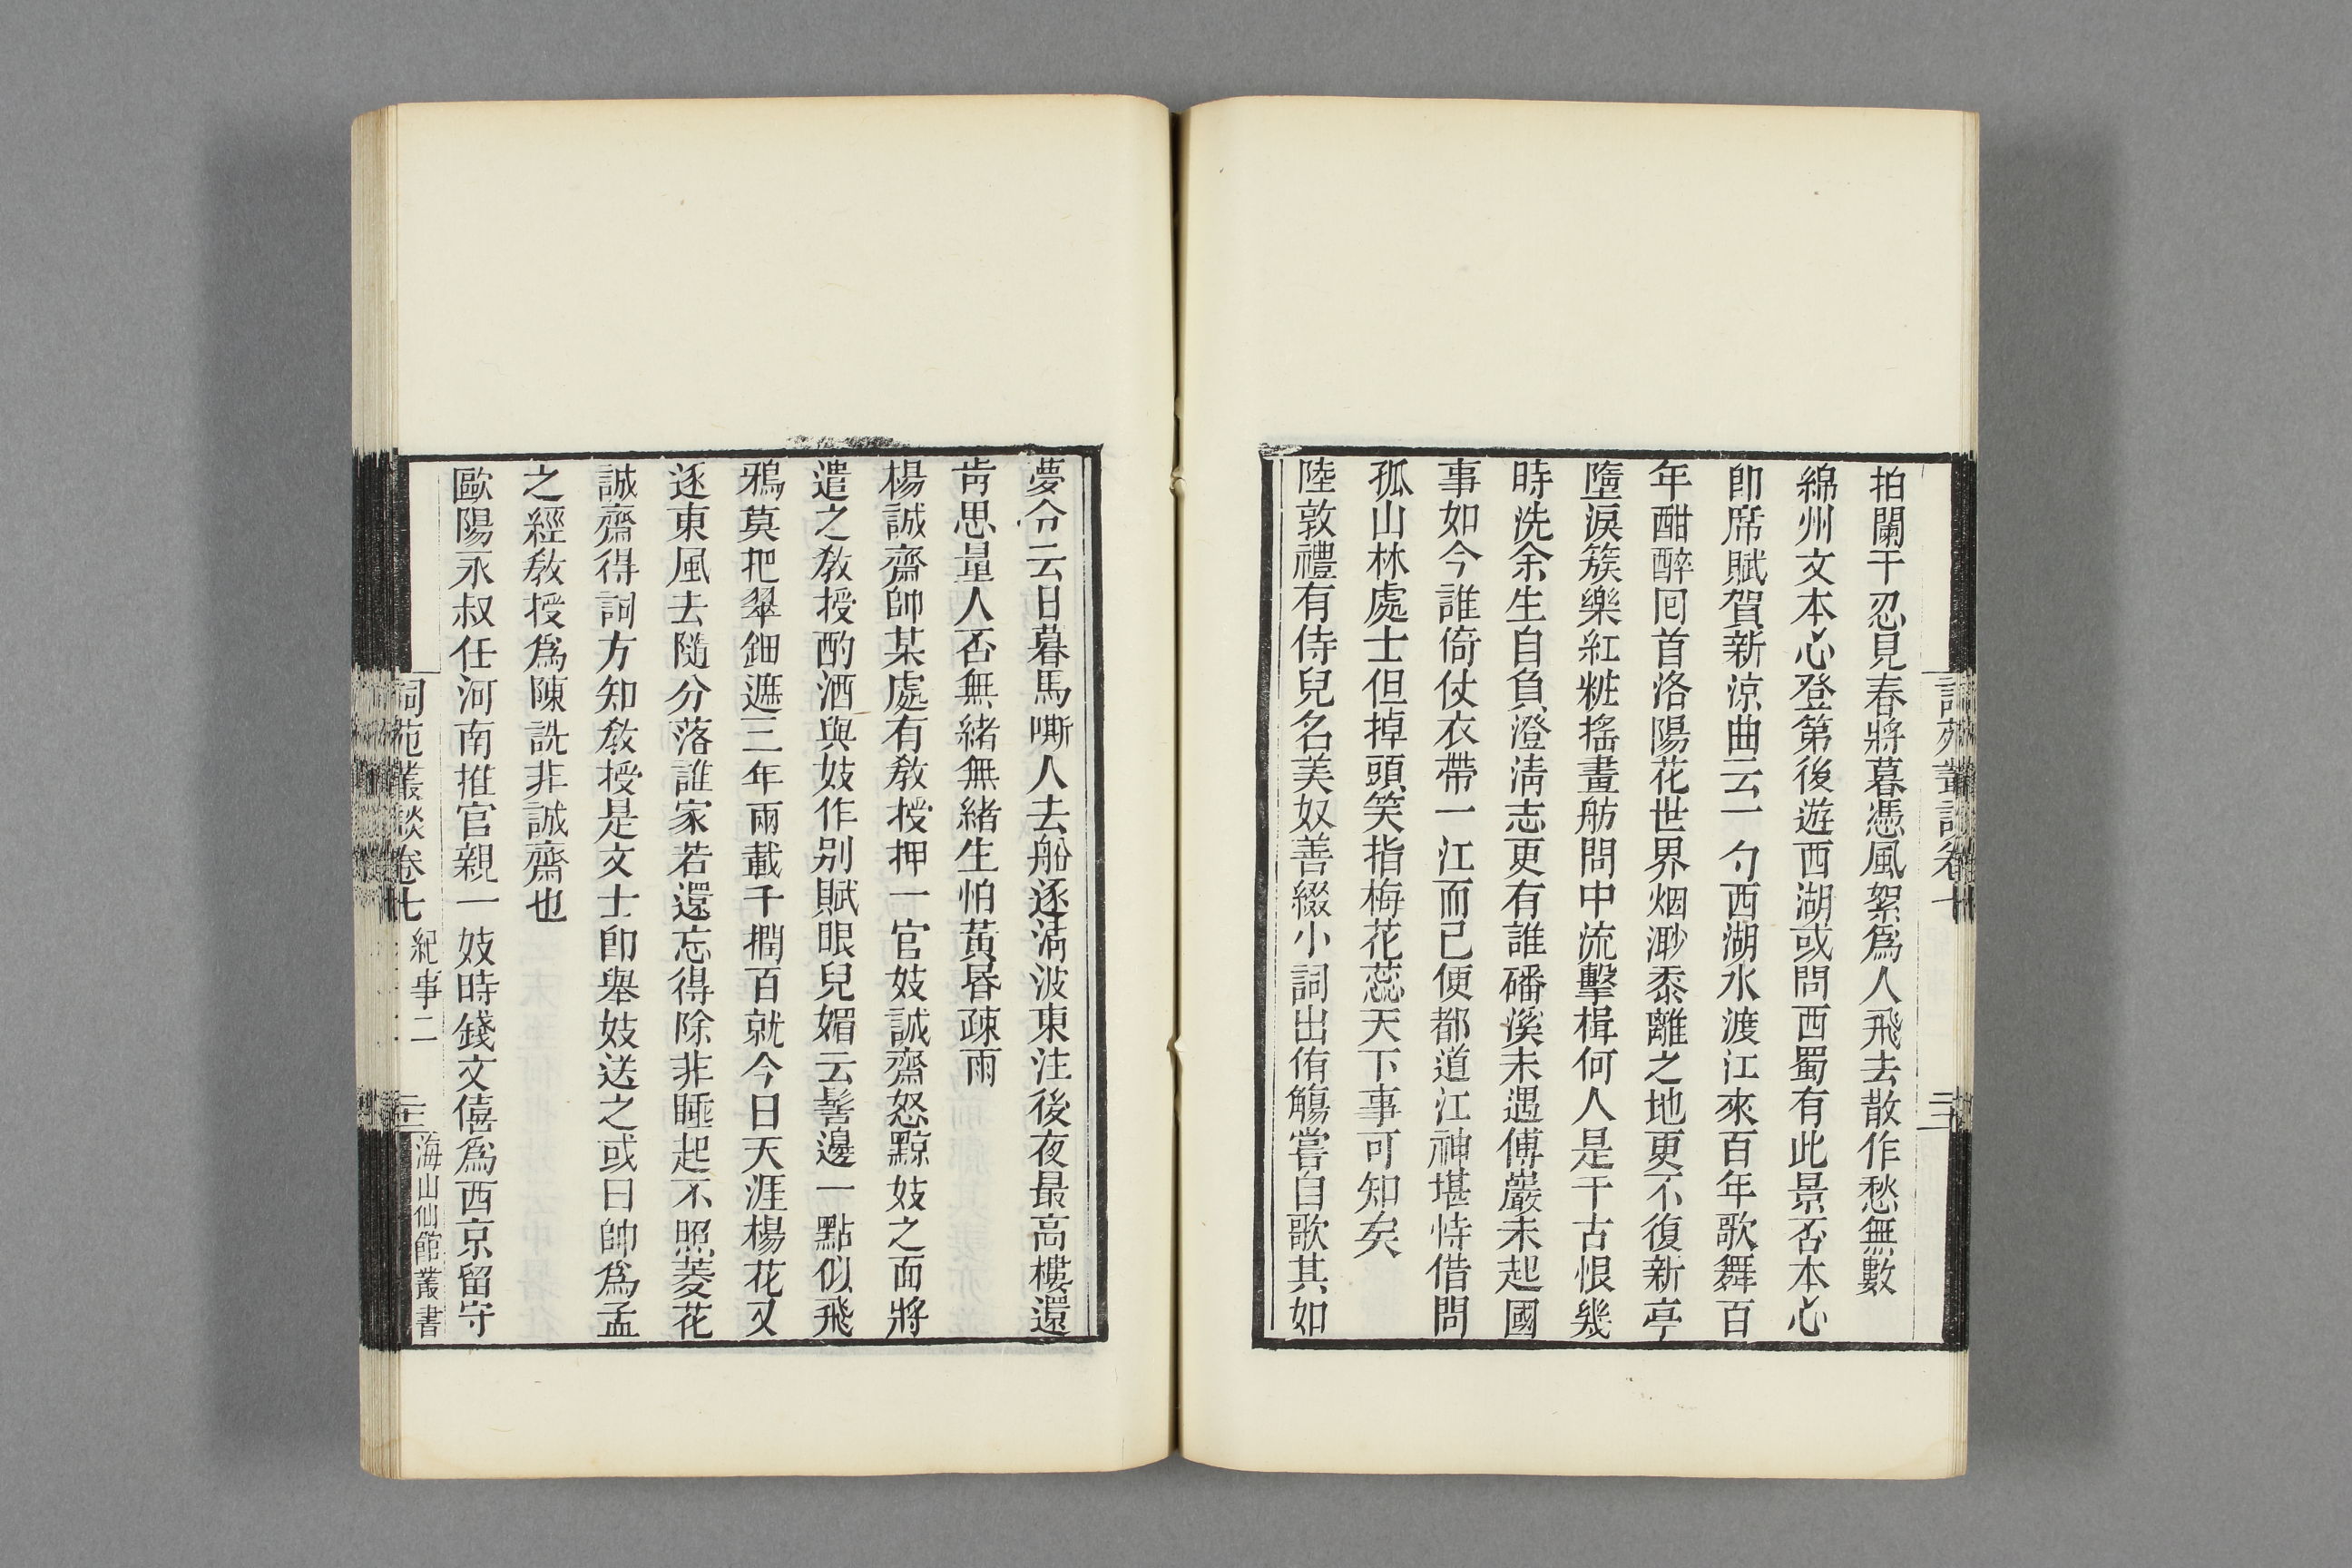 拍闌干忍見春將暮憑風絮爲人飛去散作愁無數
綿州文本心登第後遊西湖或問西蜀有此景否本心
卽席賦賀新凉曲云一勺西湖水渡江來百年歌舞百
年酣醉囘首洛陽花世界烟渺黍離之地更不復新亭
墮淚簇樂紅粧搖畫舫問中流擊楫何人是千古恨幾
時洗余生自負澄淸志更有誰磻溪未遇傅巖未起國
事如今誰倚仗衣帶一江而已便都道江神堪恃借問
孤山林處士但掉頭笑指梅花蕊天下事可知矣
陸敦禮有侍兒名美奴善綴小詞出侑觴嘗自歌其如
夢令云日暮馬嘶人去船逐淸波東注後夜最高樓還
肯思量人否無緖無緖生怕黃昬疎雨
楊誠齋帥某處有敎授押一官妓誠齋怒黥妓之面將
遣之敎授酌酒與妓作别賦眼兒媚云鬢邊一點似飛
鴉莫把翠鈿遮三年兩載千撋百就今日天涯楊花又
逐東風去隨分落誰家若還忘得除非睡起不照菱花
誠齋得詞方知敎授是文士卽舉妓送之或曰帥爲孟
之經敎授爲陳詵非誠齋也
歐陽永叔任河南推官親一妓時錢文僖爲西京留守
詞苑叢談卷七 紀事二 海山仙館叢書